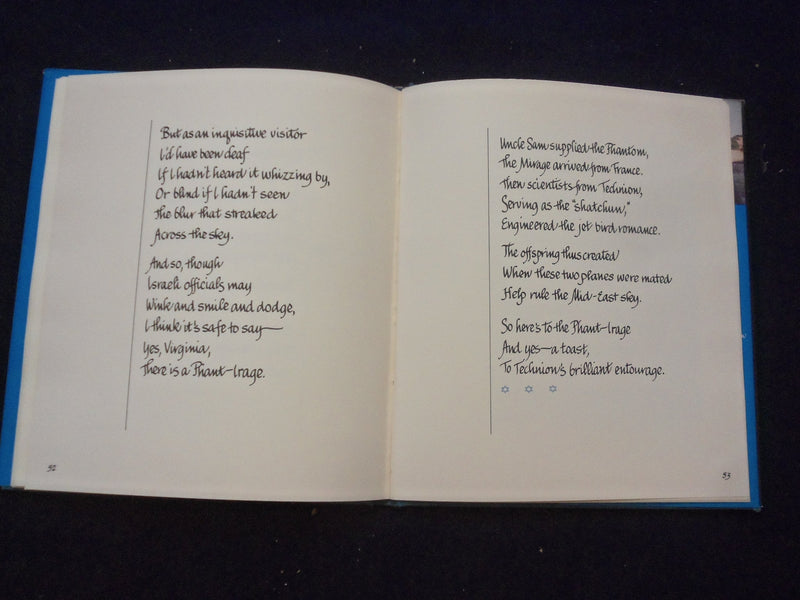 But as an inquisitive visitor
I'd have been deaf
If I hadn't heard it whizzing by,
Or blind if I hadn't seen
The blur that streaked
Across the sky.
And so, though
Israeli officials may
Wink and smile and dodge,
I think it's safe to say—
Yes, Virginia,
There is a Phant-Irage.
52
Uncle Sam supplied the Phantom,
The Mirage arrived from France.
Then scientists from Technion,
Serving as the "shatchun,"
Engineered the jet bird romance.
The offspring thus created
When these two planes were mated
Help rule the Mid-East sky.
So here's to the Phant-Irage
And yes—a toast,
To Technion's brilliant entourage.
53